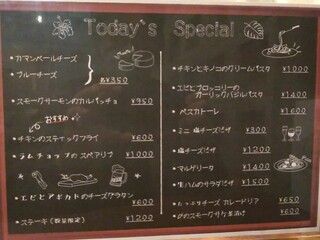 Today's Special
・カマンベールチーズ
・ブルーチーズ
各¥350
・スモークサーモンのカルパッチョ ¥950
おすすめ
・チキンのスティックフライ ¥600
・ラムチョップのスペアリブ ¥1000
・エビとアボカドのチーズグラタン ¥600
・ステーキ(数量限定) ¥1200
・チキンとキノコのクリームパスタ ¥1000
・エビとブロッコリーのガーリックバジルパスタ ¥1400
・ペスカトーレ ¥1600
・ミニ 塩チーズピザ ¥300
・塩チーズピザ ¥1200
・マルゲリータ ¥1400
・生ハムのサラダピザ ¥1500
・たっぷりチーズ カレードリア ¥650
¥600